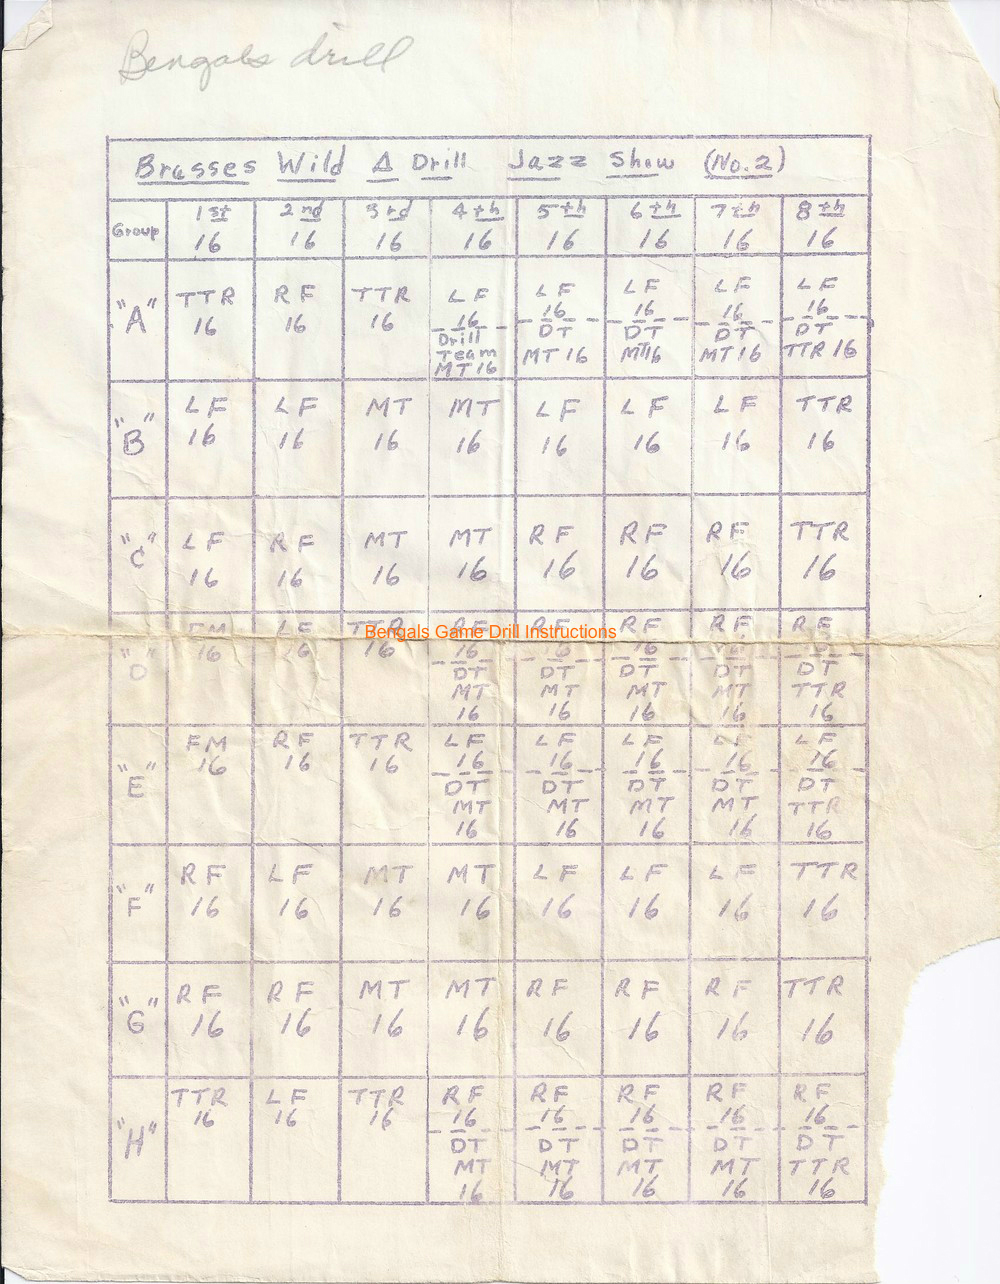 Bengals drill
Brasses Wild Δ Drill Jazz Show (No. 2)
Group 1st 2nd 3rd 4th 5th 6th 7th 8th
16 16 16 16 16 16 16 16
"A" TTR RF TTR LF LF LF LF LF
16 16 16 16 16 16 16 16
Drill DT DT DT DT
Team MT 16 MT16 MT 16 TTR 16
MT 16
"B" LF LF MT MT LF LF LF TTR
16 16 16 16 16 16 16 16
"C" LF RF MT MT RF RF RF TTR
16 16 16 16 16 16 16 16
"D" FM LF TTR RF RF RF RF RF
Bengals Game Drill Instructions
16 16 16 16 16 16 16 16
DT DT DT DT DT
MT MT MT MT TTR
16 16 16 16 16
"E" FM RF TTR LF LF LF LF LF
16 16 16 16 16 16 16 16
DT DT DT DT DT
MT MT MT MT TTR
16 16 16 16 16
"F" RF LF MT MT LF LF LF TTR
16 16 16 16 16 16 16 16
"G" RF RF MT MT RF RF RF TTR
16 16 16 16 16 16 16 16
"H" TTR LF TTR RF RF RF RF RF
16 16 16 16 16 16 16 16
DT DT DT DT DT
MT MT MT MT TTR
16 16 16 16 16